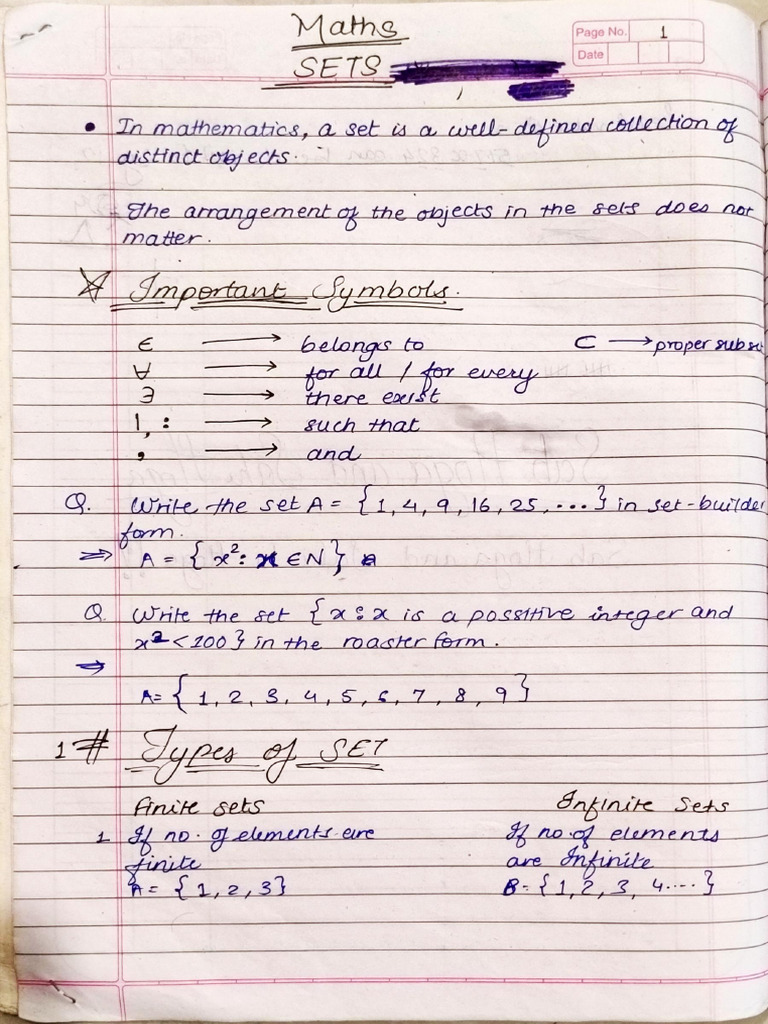 Maths
Page No. 1
SETS
Date
• In mathematics, a set is a well-defined collection of
distinct objects.
The arrangement of the objects in the sets does not
matter.
Important Symbols.
∈ → belongs to ⊂ → proper subset
∀ → for all / for every
∃ → there exist
|, : → such that
, → and
Q. Write the set A = {1, 4, 9, 16, 25, ...} in set-builder
form.
⇒ A = { x²: x ∈ N}
Q. Write the set {x : x is a possitive integer and
x² < 100} in the roaster form.
⇒
A = { 1, 2, 3, 4, 5, 6, 7, 8, 9}
1 # Types of SET
Finite sets Infinite Sets
1 If no. of elements are If no. of elements
finite are Infinite
A = {1, 2, 3} B = {1, 2, 3, 4....}